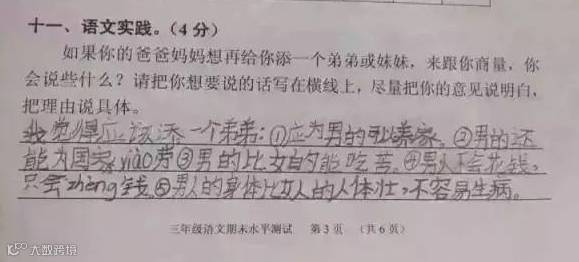 十一、语文实践。（4分）
如果你的爸爸妈妈想再给你添一个弟弟或妹妹，来跟你商量，你
会说些什么？请把你想要说的话写在横线上，尽量把你的意见说明白，
把理由说具体。
我觉得应该添一个弟弟：①应为男的可以养家。②男的还
能为国家xiào劳③男的比女的能吃苦。④男人不会花钱，
只会zhèng钱。⑤男人的身体比女人的人体壮，不容易生病。
三年级语文期末水平测试 第3页 （共6页）
大数跨境